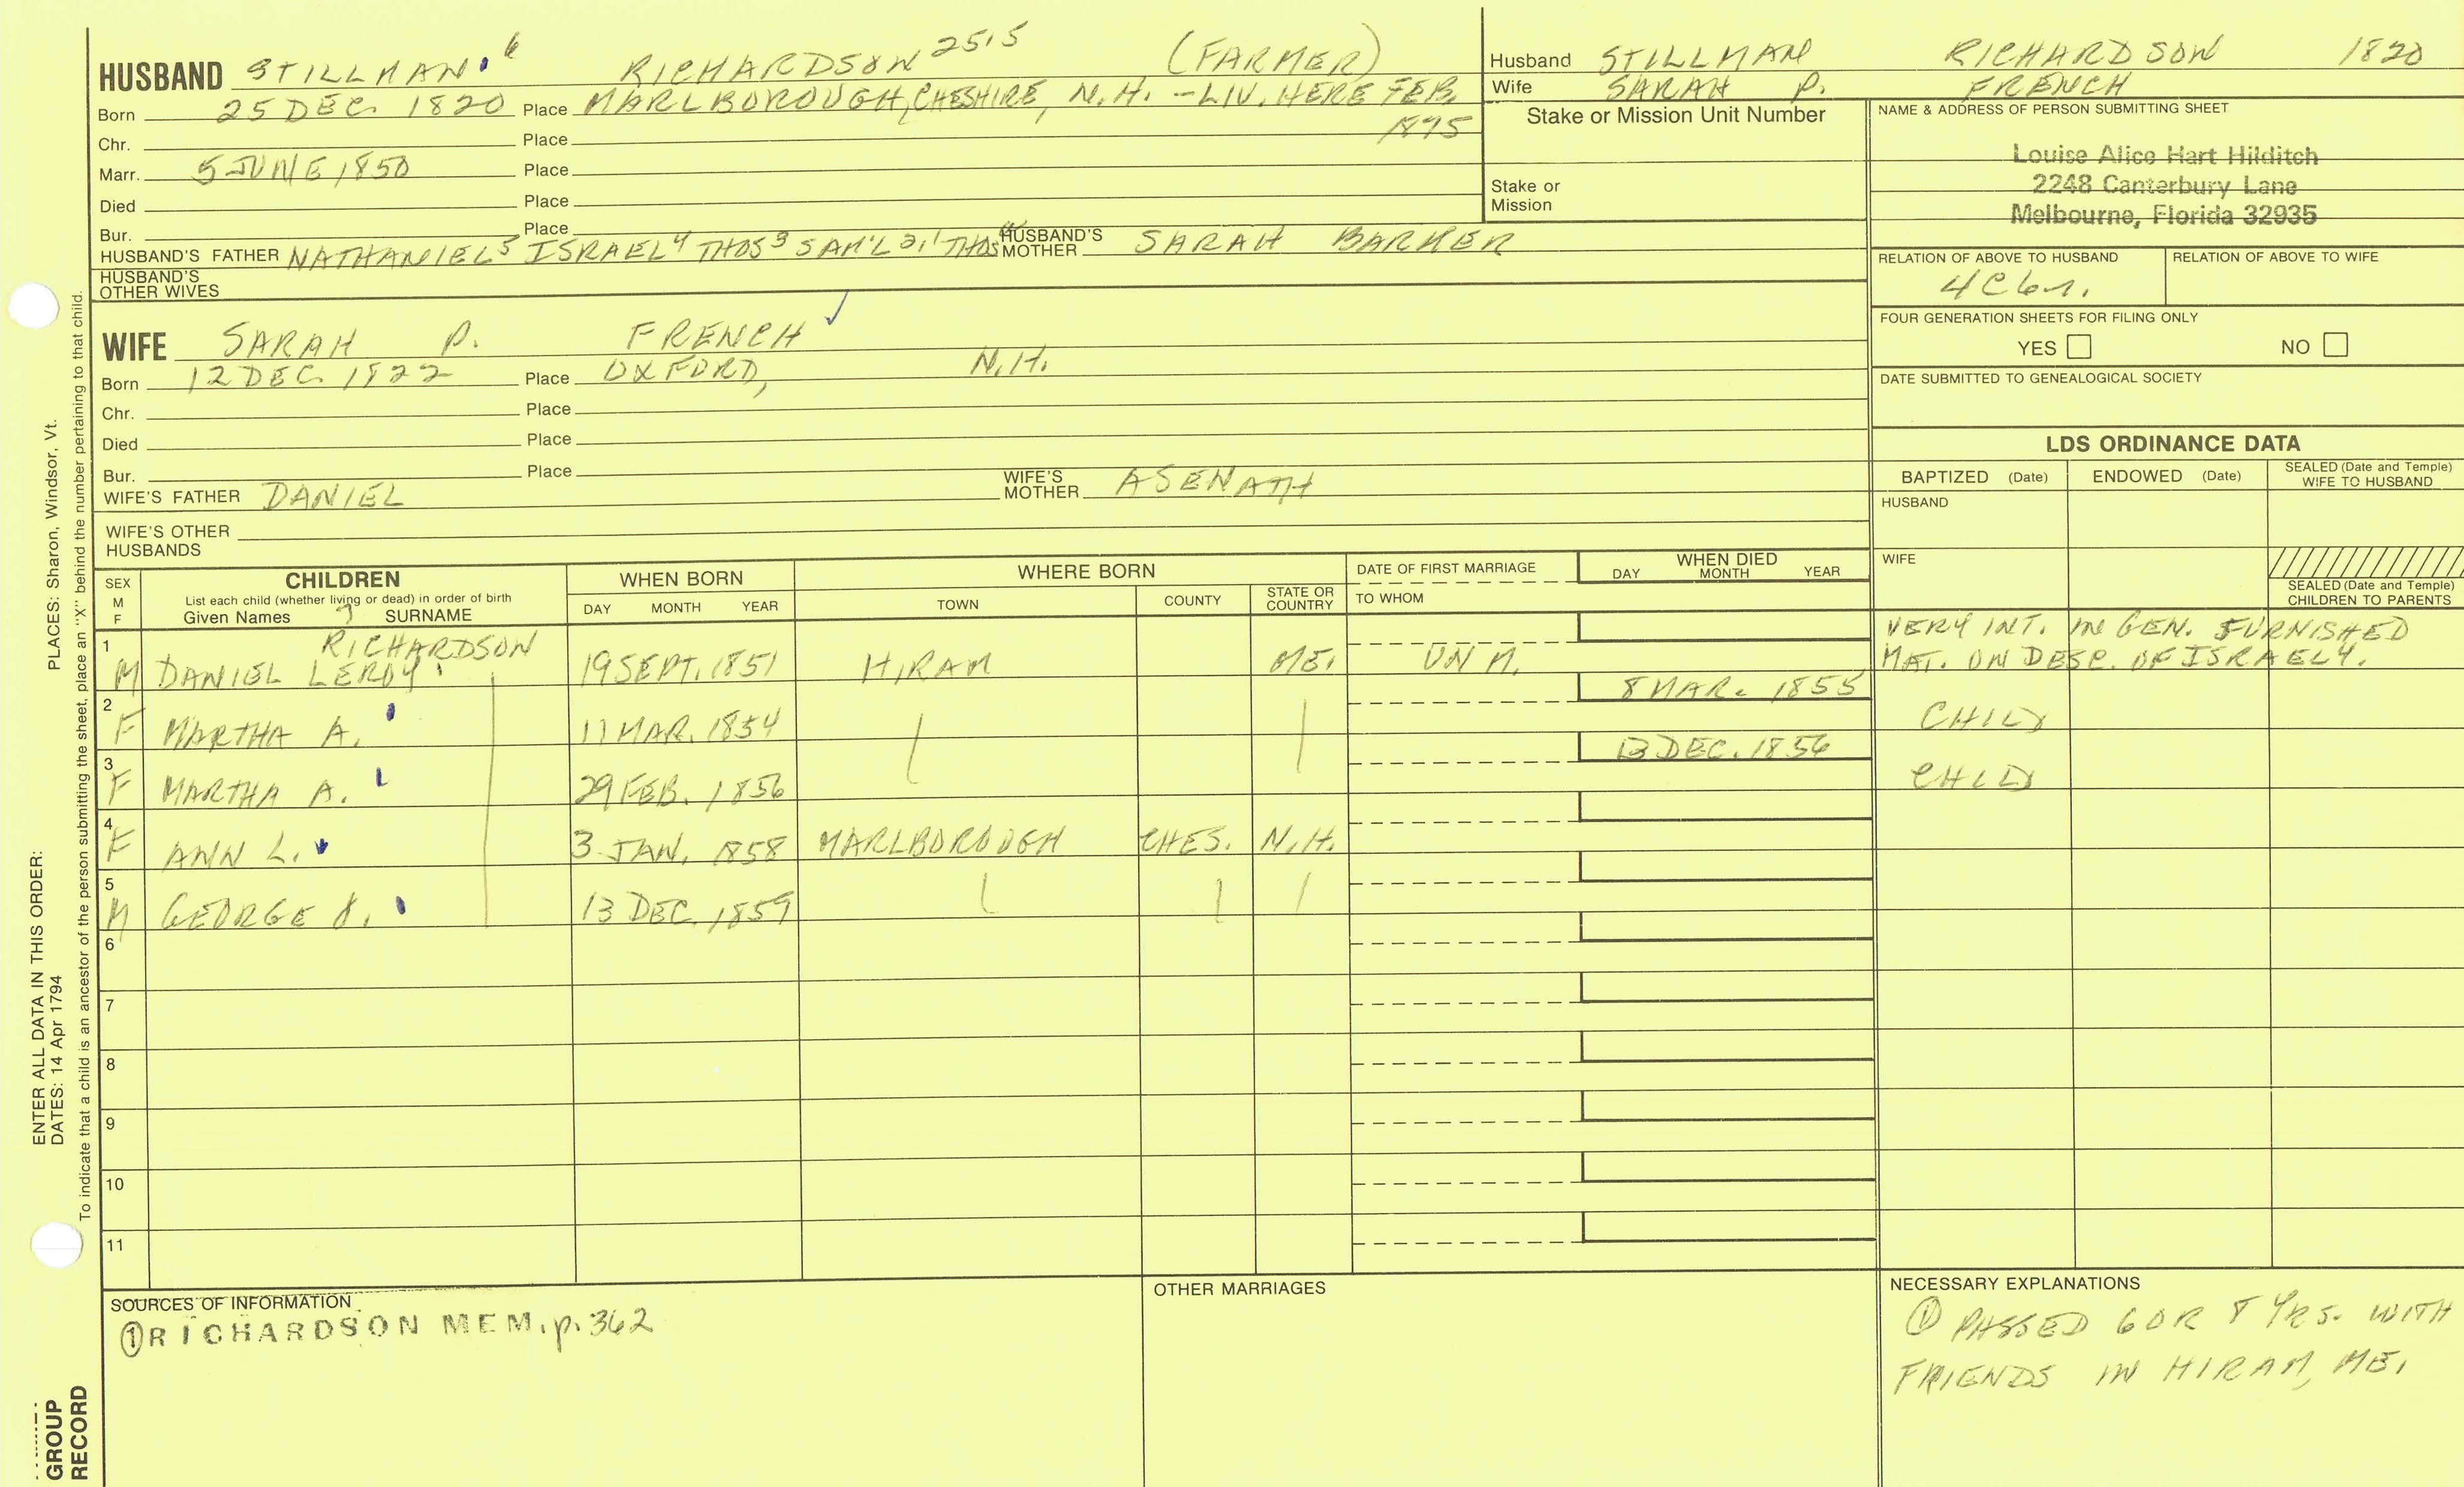 HUSBAND STILLMAN 6 RICHARDSON 2515 (FARMER)
Born 25 DEC. 1820 Place MARLBOROUGH, CHESHIRE, N.H. - LIV. HERE FEB.
1875
Chr. Place
Marr. 5 JUNE 1850 Place
Died Place
Bur. Place
HUSBAND'S FATHER NATHANIEL5 ISRAEL4 THOS3 SAM'L2,1 THOS HUSBAND'S MOTHER SARAH BARKER
HUSBAND'S OTHER WIVES
WIFE SARAH P. FRENCH ✓
Born 12 DEC. 1822 Place OXFORD, N.H.
Chr. Place
Died Place
Bur. Place
WIFE'S FATHER DANIEL WIFE'S MOTHER ASENATH
WIFE'S OTHER HUSBANDS
Husband STILLMAN RICHARDSON 1820
Wife SARAH P. FRENCH
Stake or Mission Unit Number
Stake or Mission
NAME & ADDRESS OF PERSON SUBMITTING SHEET
Louise Alice Hart Hilditch
2248 Canterbury Lane
Melbourne, Florida 32935
RELATION OF ABOVE TO HUSBAND RELATION OF ABOVE TO WIFE
4C6r.
FOUR GENERATION SHEETS FOR FILING ONLY
YES NO
DATE SUBMITTED TO GENEALOGICAL SOCIETY
LDS ORDINANCE DATA
BAPTIZED (Date) ENDOWED (Date) SEALED (Date and Temple) WIFE TO HUSBAND
HUSBAND
WIFE
SEALED (Date and Temple) CHILDREN TO PARENTS
SEX M F
CHILDREN
List each child (whether living or dead) in order of birth
Given Names 7 SURNAME
WHEN BORN
DAY MONTH YEAR
WHERE BORN
TOWN COUNTY STATE OR COUNTRY
DATE OF FIRST MARRIAGE
TO WHOM
WHEN DIED
DAY MONTH YEAR
1 M DANIEL LEROY RICHARDSON 19 SEPT. 1851 HIRAM ME. UN M. VERY INT. IN GEN. FURNISHED
MAT. ON DESC. OF ISRAEL4.
2 F MARTHA A. 11 MAR. 1854 8 MAR. 1855 CHILD
3 F MARTHA A. 29 FEB. 1856 13 DEC. 1856 CHILD
4 F ANN L. 3 JAN. 1858 MARLBOROUGH CHES. N.H.
5 M GEORGE 13 DEC. 1859
6
7
8
9
10
11
SOURCES OF INFORMATION
① RICHARDSON MEM. p. 362
OTHER MARRIAGES
NECESSARY EXPLANATIONS
① PASSED 6 OR 8 YRS. WITH
FRIENDS IN HIRAM, ME.
ENTER ALL DATA IN THIS ORDER:
DATES: 14 Apr 1794 PLACES: Sharon, Windsor, Vt.
To indicate that a child is an ancestor of the person submitting the sheet, place an "X" behind the number pertaining to that child.
GROUP
RECORD